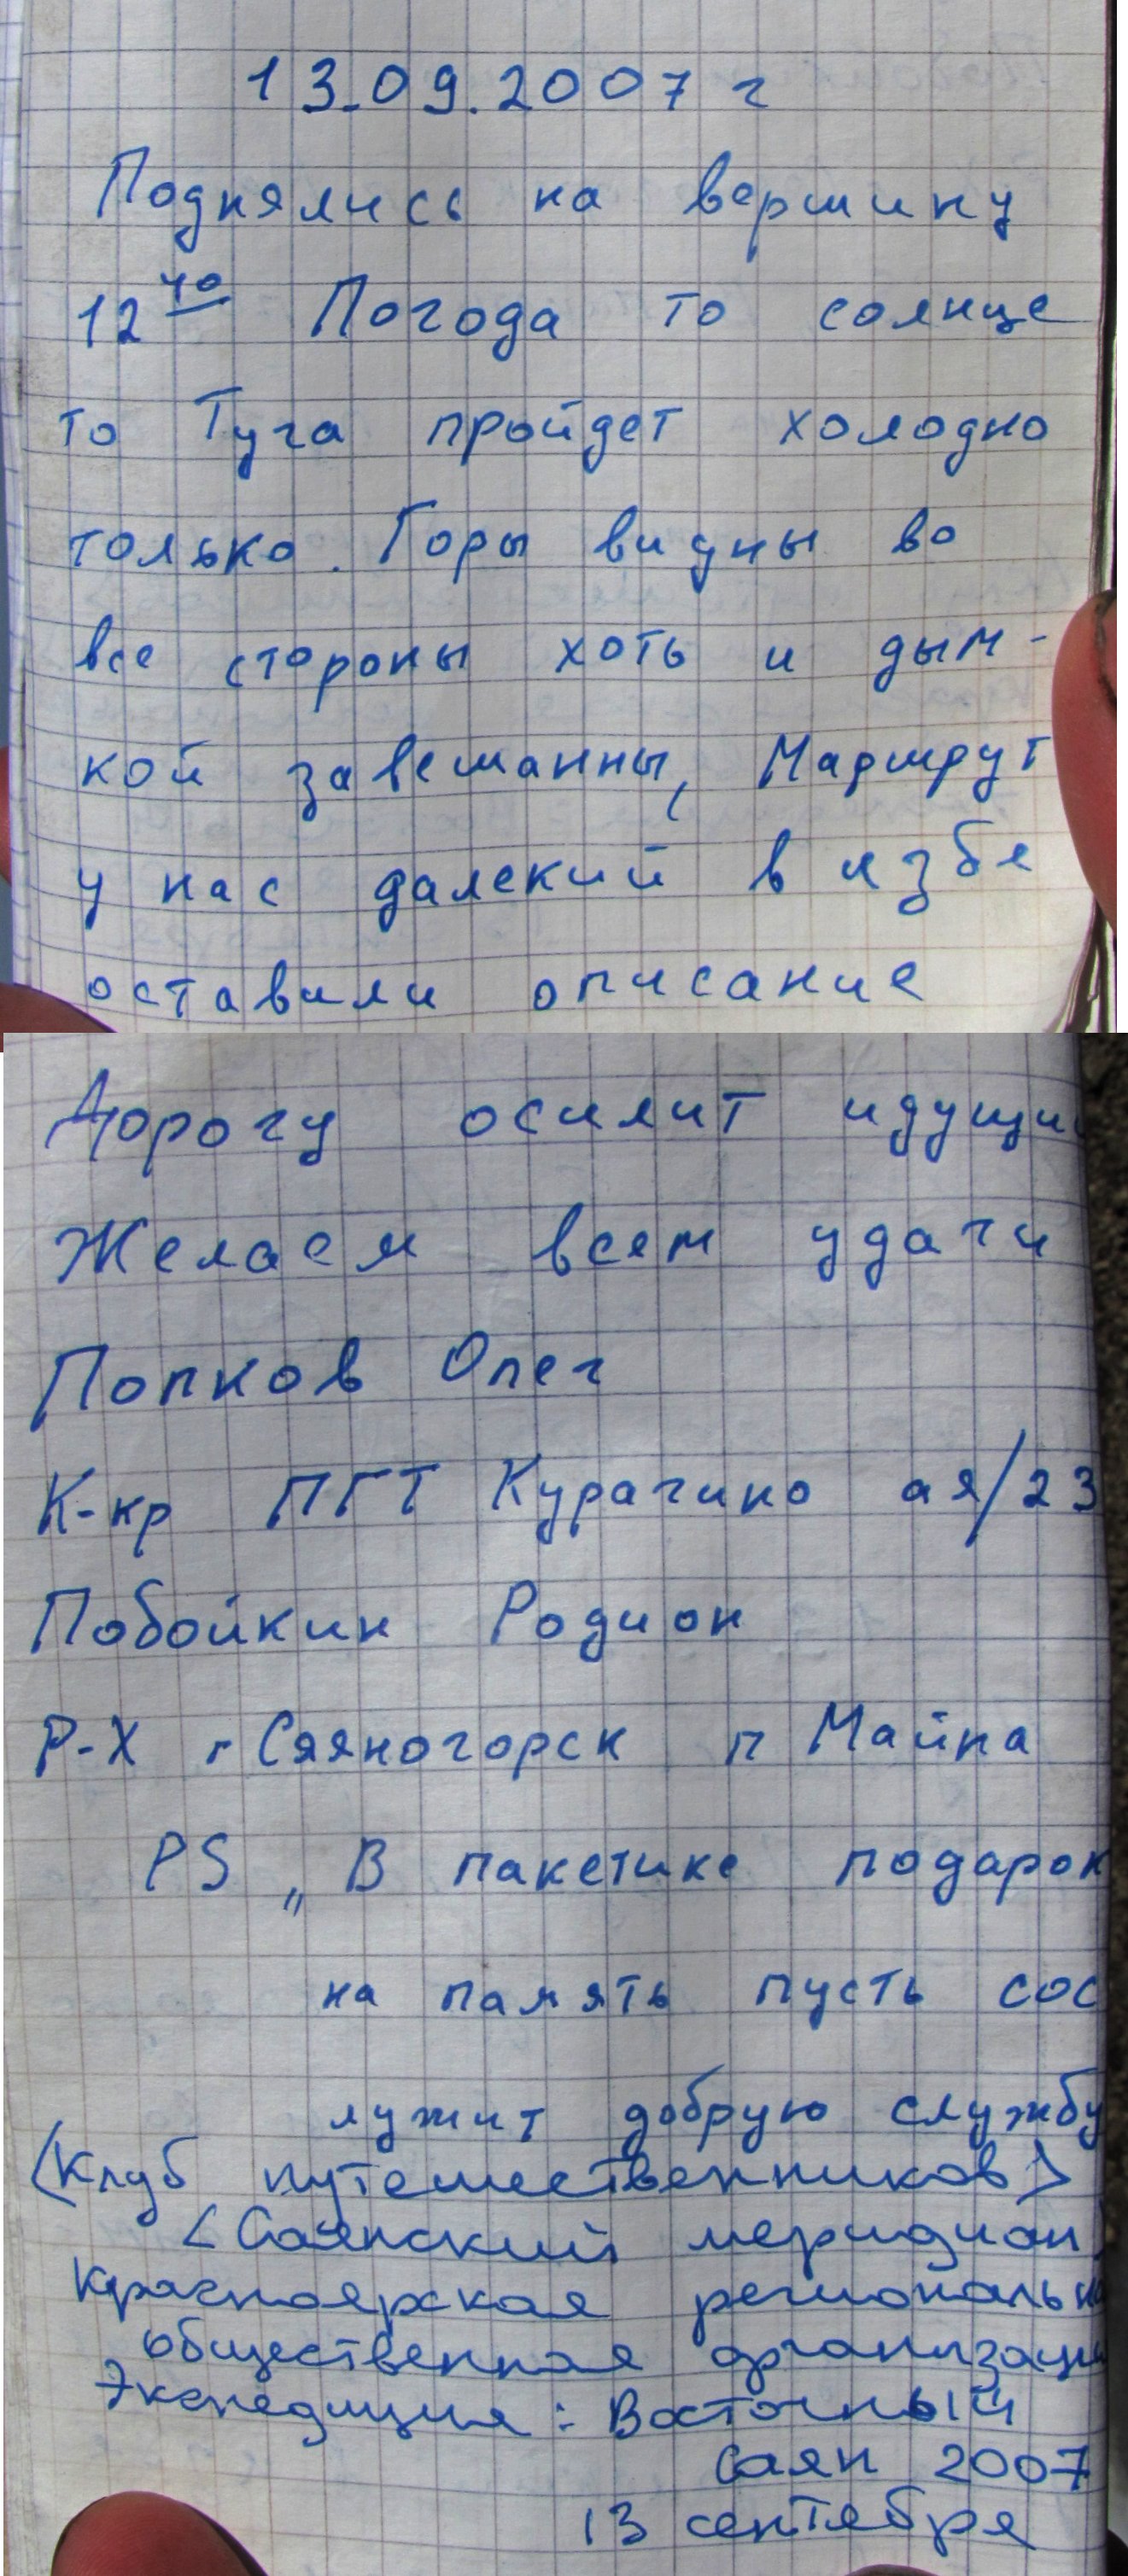 13.09.2007 г
Поднялись на вершину
12 40 Погода то солнце
то Туча пройдет холодно
только. Горы видны во
все стороны хоть и дым-
кой завешанны, Маршрут
у нас далекий в избе
оставили описание
Дорогу осилит идущи
Желаем всем удачи
Попков Олег
К-кр ПГТ Курагино ая/23
Побойкин Родион
Р-Х г Саяногорск п Майна
PS „ В пакетике подарок
на память пусть сос
лужит добрую службу
(Клуб путешественников>
<Саянский меридиан
Красноярская региональн
общественная организаци
Экспедиция: Восточный
Саян 2007
13 сентября